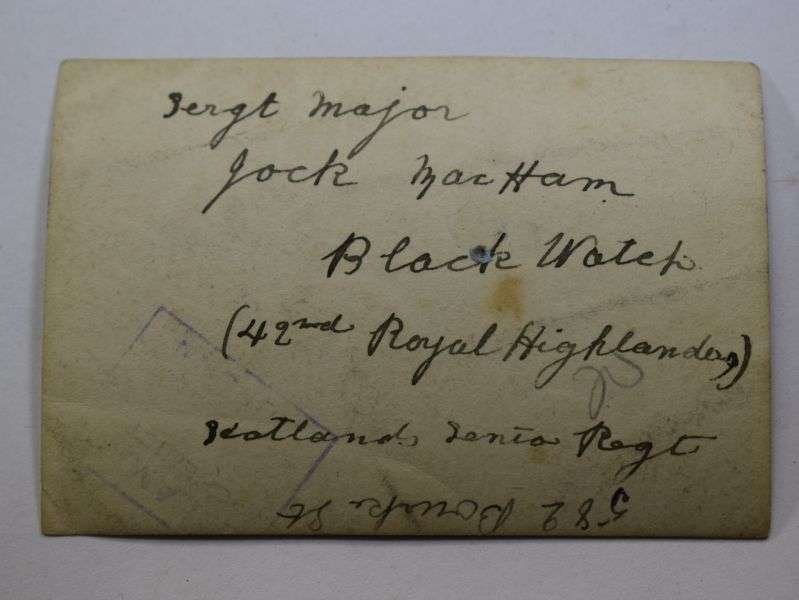 Sergt Major
Jock MacHam
Black Watch
(42nd Royal Highlanders)
Scotlands Senio Regt
582 Bourke St